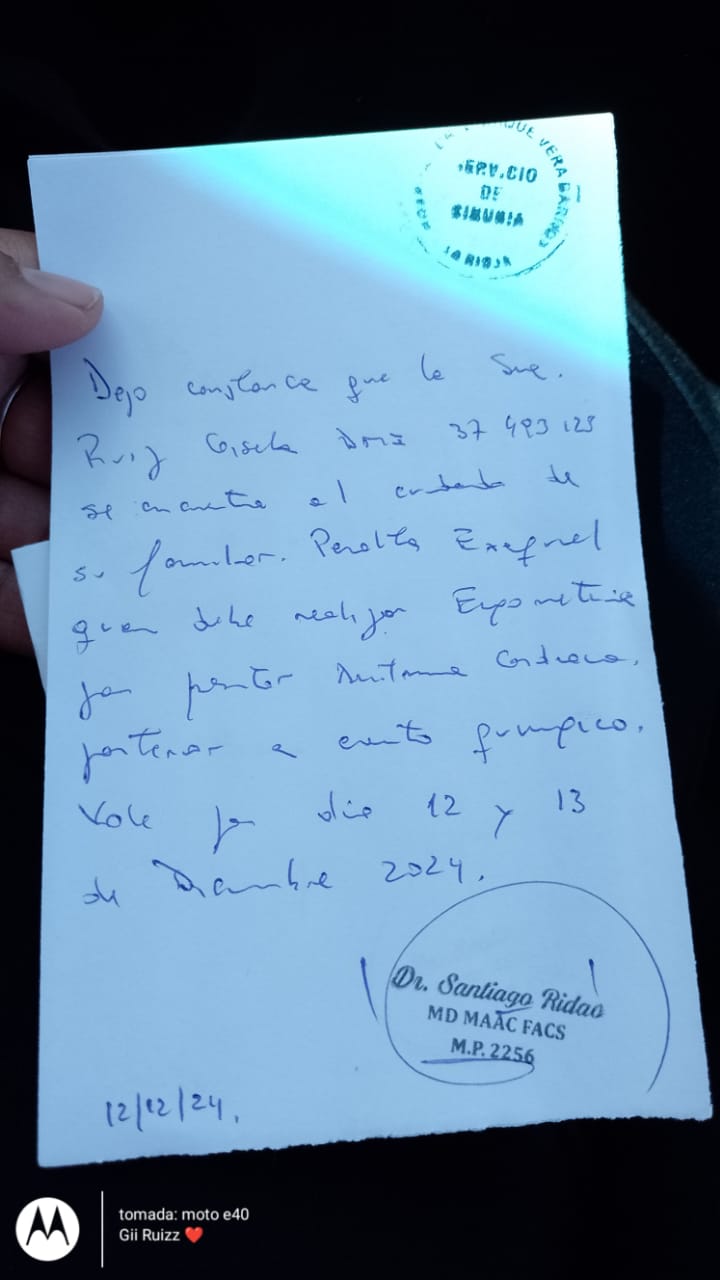 VERA BARROS
SERVICIO
DE
CIRUGIA
LA RIOJA
Dejo constancia que la Sra.
Ruiz Gisela DNI: 37 493 123
se encuentra al cuidado de
su familiar. Peralta Exequiel
quien debe realizar Ergometria
por presentar sintoma Cardiaco.
posterior a evento quirurgico.
Vale por dia 12 y 13
de Diciembre 2024.
Dr. Santiago Ridao
MD MAAC FACS
M.P. 2256
12/12/24.
tomada: moto e40
Gii Ruizz ❤️